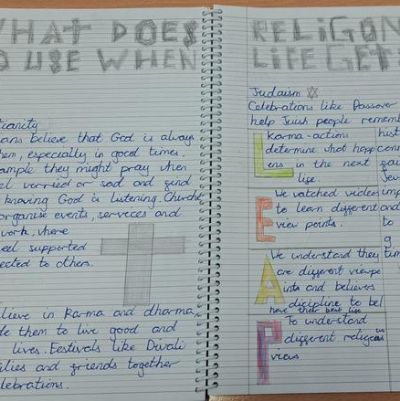 WHAT DOES
O USE WHEN
tianity
ans believe that God is always
hem, especially in good times.
ample they might pray when
el worried or sad and find
knowing God is listening. Churche
organise events, services and
work, where
eel supported
ected to others.
elieve in Karma and dharma,
ide them to live good and
lives. Festivals like Diwali
ilies and friends together
elebrations.
RELIGON
LIFE GETS
Judaism
Celebrations like Passover
help Jeish people remembe
L
Karma-action
determine what happ
ens in the next
life.
E
We watched video
to learn different
view points.
A
We understand they
are different viewpo
ints and believers
discipline to bel
have their best life
P
To understand
different religeous
views